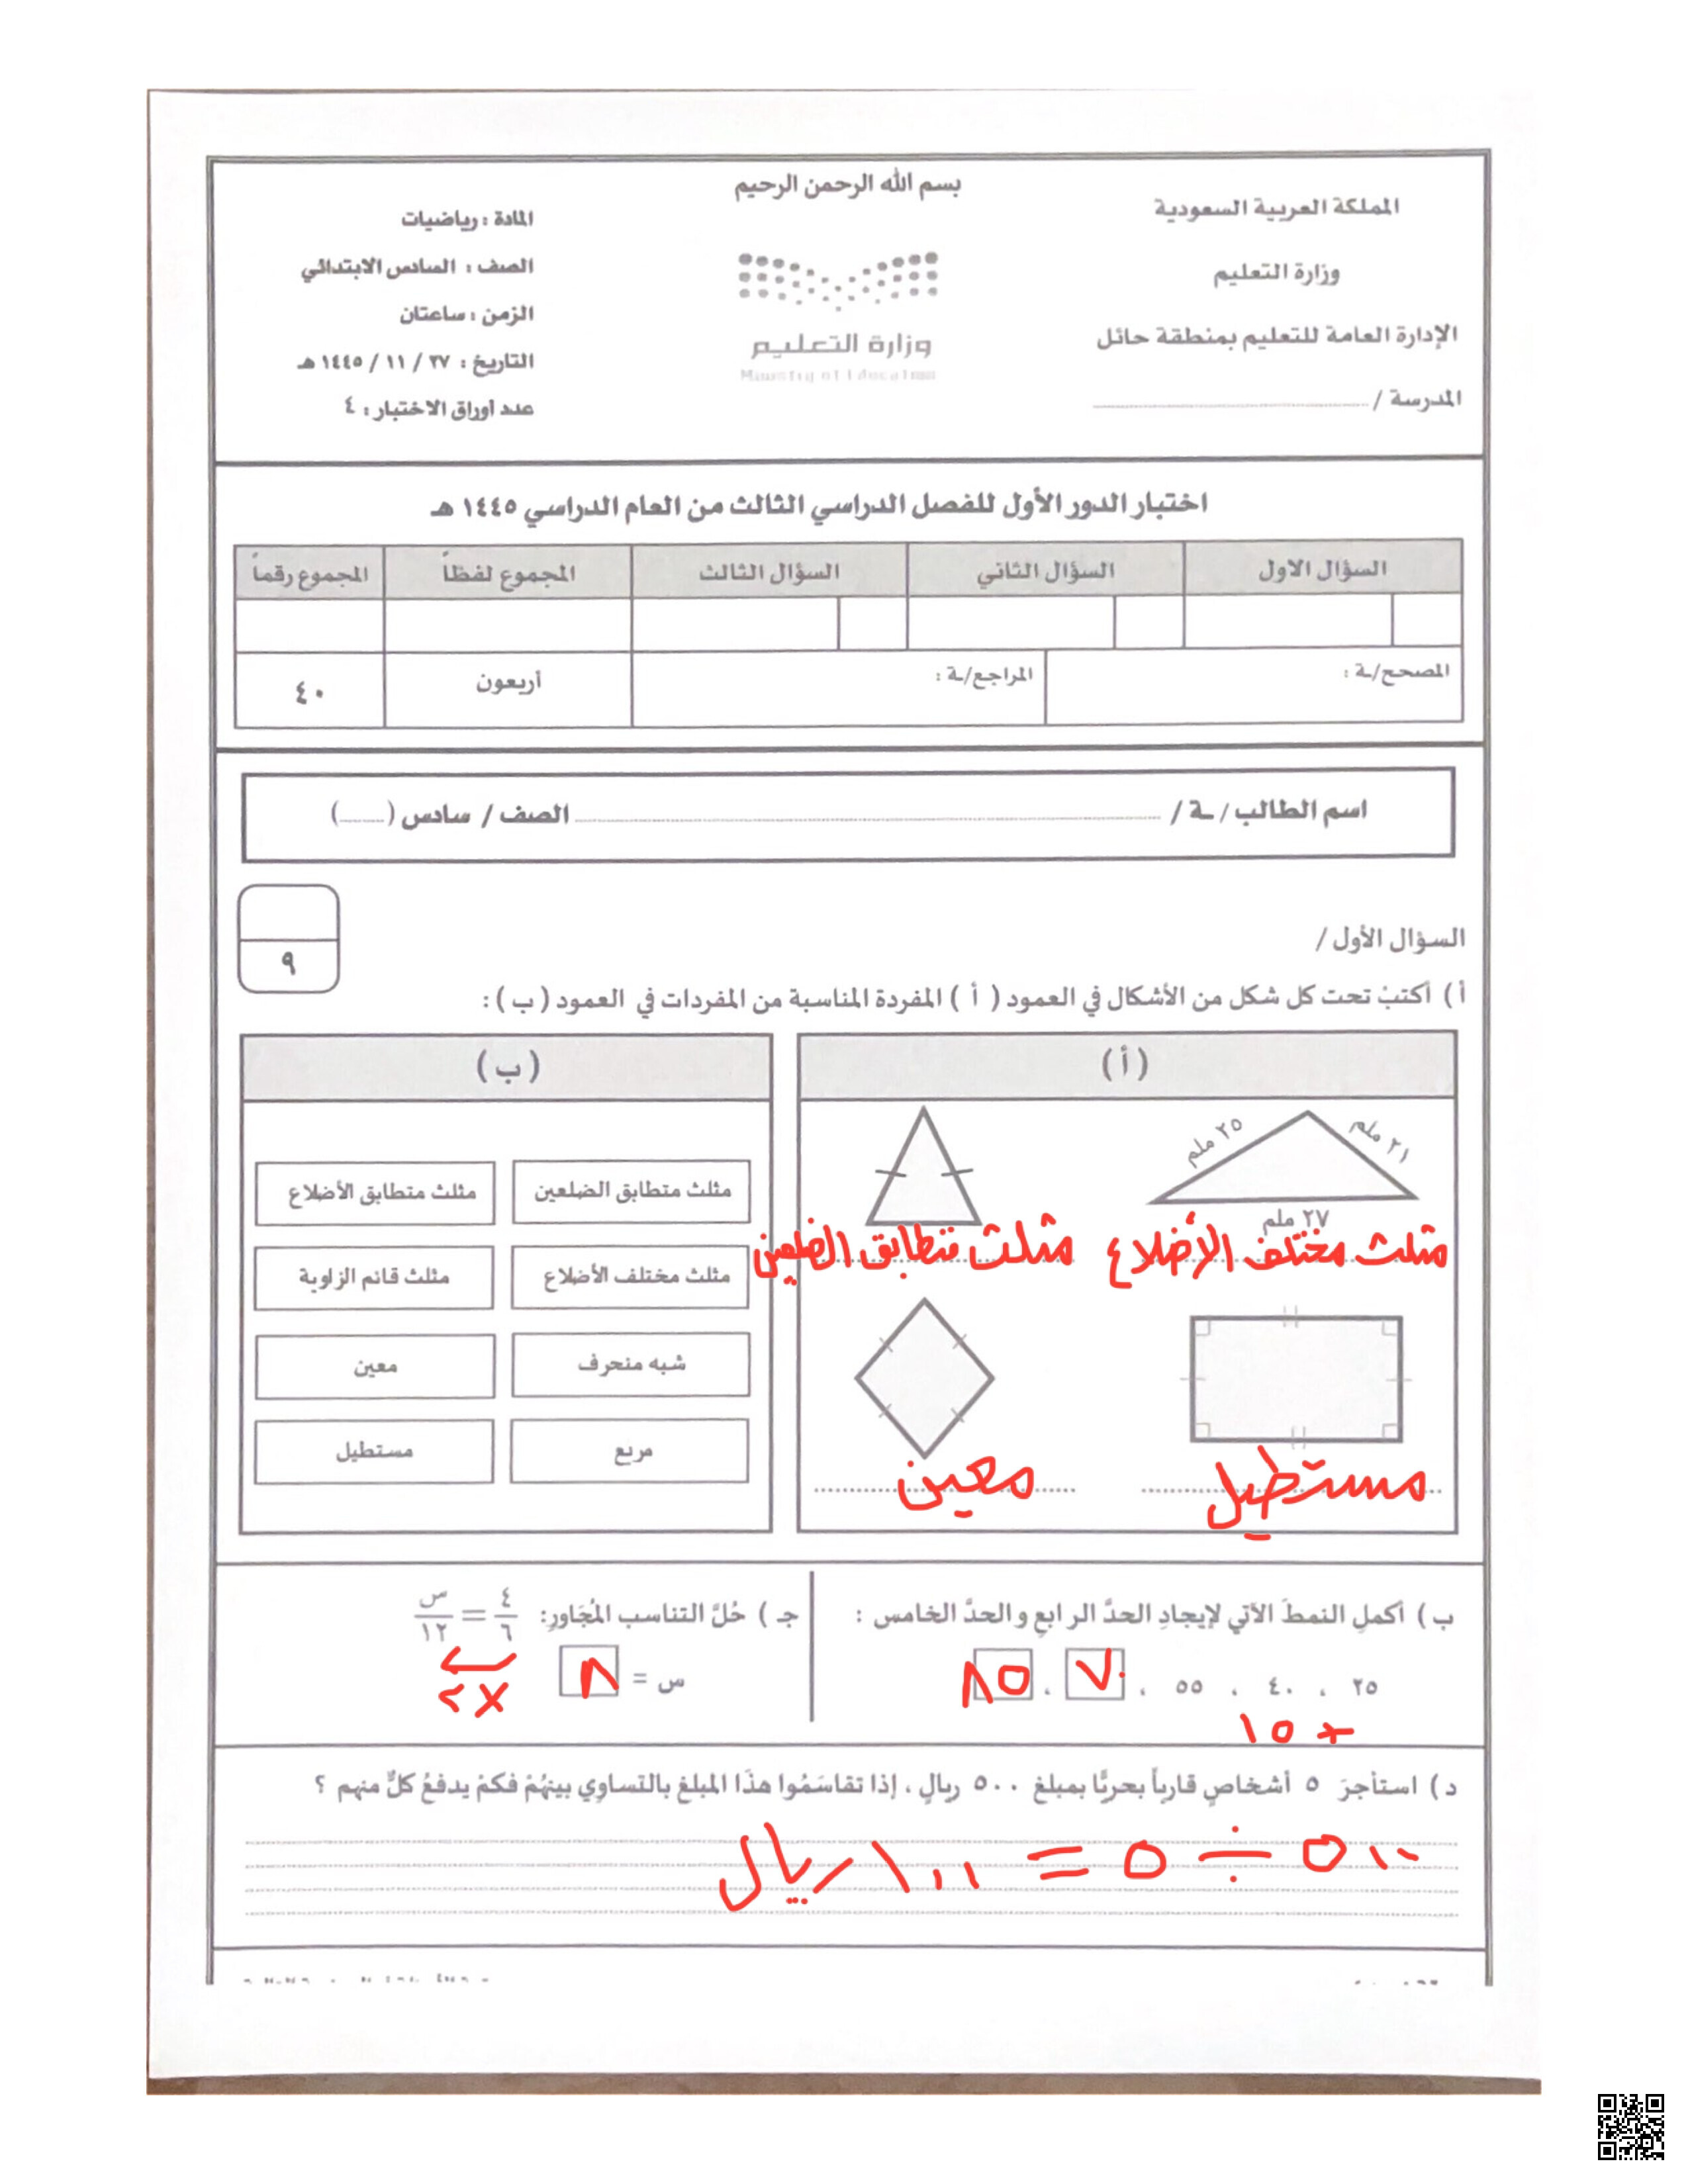 بسم الله الرحمن الرحيم
المملكة العربية السعودية
وزارة التعليم
الإدارة العامة للتعليم بمنطقة حائل
المدرسة /
وزارة التعليم
Ministry of Education
المادة : رياضيات
الصف : السادس الابتدائي
الزمن : ساعتان
التاريخ : ٢٧ / ١١ / ١٤٤٥ هـ
عدد أوراق الاختبار : ٤
اختبار الدور الأول للفصل الدراسي الثالث من العام الدراسي ١٤٤٥ هـ
السؤال الاول السؤال الثاني السؤال الثالث المجموع لفظاً المجموع رقماً
المصحح/ـة : المراجع/ـة : أربعون ٤٠
اسم الطالب / ـة / الصف / سادس ( )
السؤال الأول /
٩
أ ) أكتبُ تحت كل شكل من الأشكال في العمود ( أ ) المفردة المناسبة من المفردات في العمود ( ب ) :
( أ )
٢١ ملم
٢٥ ملم
٢٧ ملم
مثلث مختلف الأضلاع
مثلث متطابق الضلعين
مستطيل
معين
( ب )
مثلث متطابق الضلعين مثلث متطابق الأضلاع
مثلث مختلف الأضلاع مثلث قائم الزاوية
شبه منحرف معين
مربع مستطيل
ب ) أكملِ النمطَ الآتي لإيجادِ الحدَّ الرابعِ والحدَّ الخامس :
٢٥ ، ٤٠ ، ٥٥ ، ٧٠ ، ٨٥
+ ١٥
جـ ) حُلَّ التناسب المُجَاورِ: ٤/٦ = س/١٢
س = ٨
×٢
د ) استأجرَ ٥ أشخاصٍ قارباً بحريًّا بمبلغ ٥٠٠ ريالٍ ، إذا تقاسَمُوا هذَا المبلغ بالتساوِي بينهُمْ فكمْ يدفعُ كلٌّ منهم ؟
٥٠٠ ÷ ٥ = ١٠٠ ريال